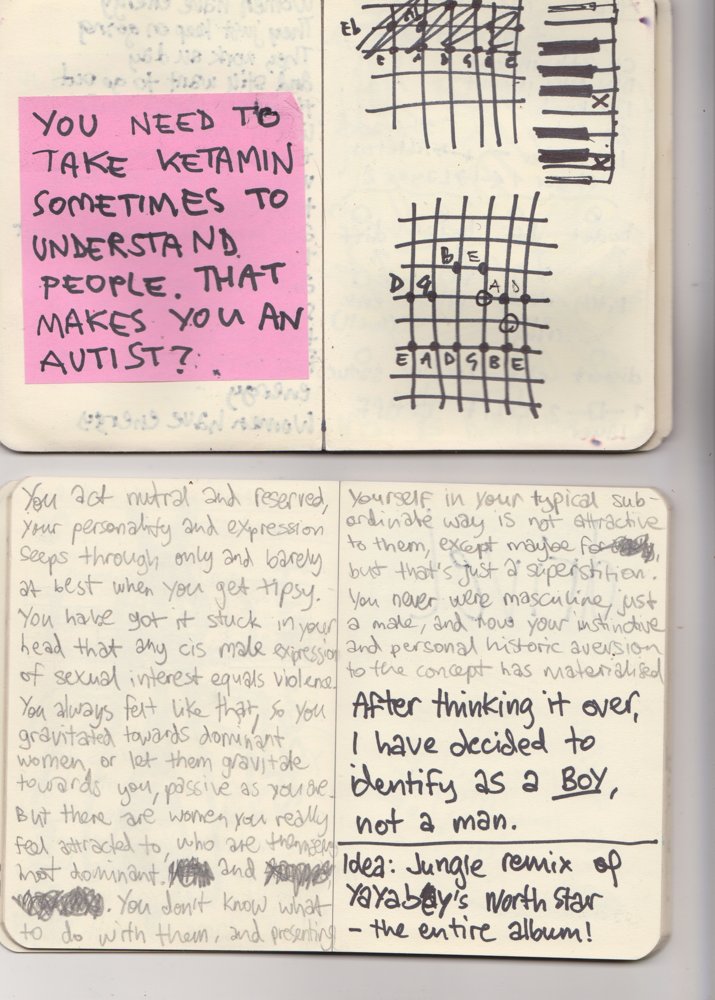 YOU NEED TO
TAKE KETAMIN
SOMETIMES TO
UNDERSTAND
PEOPLE. THAT
MAKES YOU AN
AUTIST?
Eb
E A D G B E
B E
D G A D
E A D G B E
You act nutral and reserved,
your personality and expression
seeps through only and barely
at best when you get tipsy.
You habe got it stuck in your
head that any cis male expression
of sexual interest equals violence.
You always felt like that, so you
gravitated towards dominant
women, or let them gravitate
towards you, passive as you are.
But there are women you really
feel attracted to, who are themselves
not dominant. and
. You don't know what
to do with them, and presenting
yourself in your typical sub-
ordinate way is not attractive
to them, except maybe for
but that's just a superstition.
You never were masculine, just
a male, and now your instinctive
and personal historic aversion
to the concept has materialised
After thinking it over,
I have decided to
identify as a BOY,
not a man.
Idea: Jungle remix of
Yayabey's North Star
– the entire album!